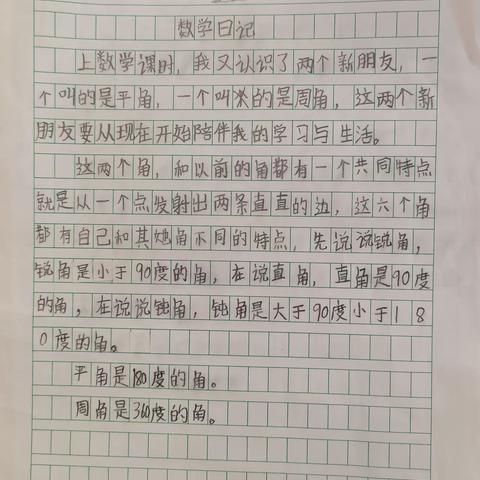 数学日记
上数学课时，我又认识了两个新朋友，一
个叫的是平角，一个叫的是周角，这两个新
朋友要从现在开始陪伴我的学习与生活。
这两个角，和以前的角都有一个共同特点
就是从一个点发射出两条直直的边，这六个角
都有自己和其她角不同的特点，先说说锐角，
锐角是小于90度的角，在说直角，直角是90度
的角，在说说钝角，钝角是大于90度小于18
0度的角。
平角是180度的角。
周角是360度的角。